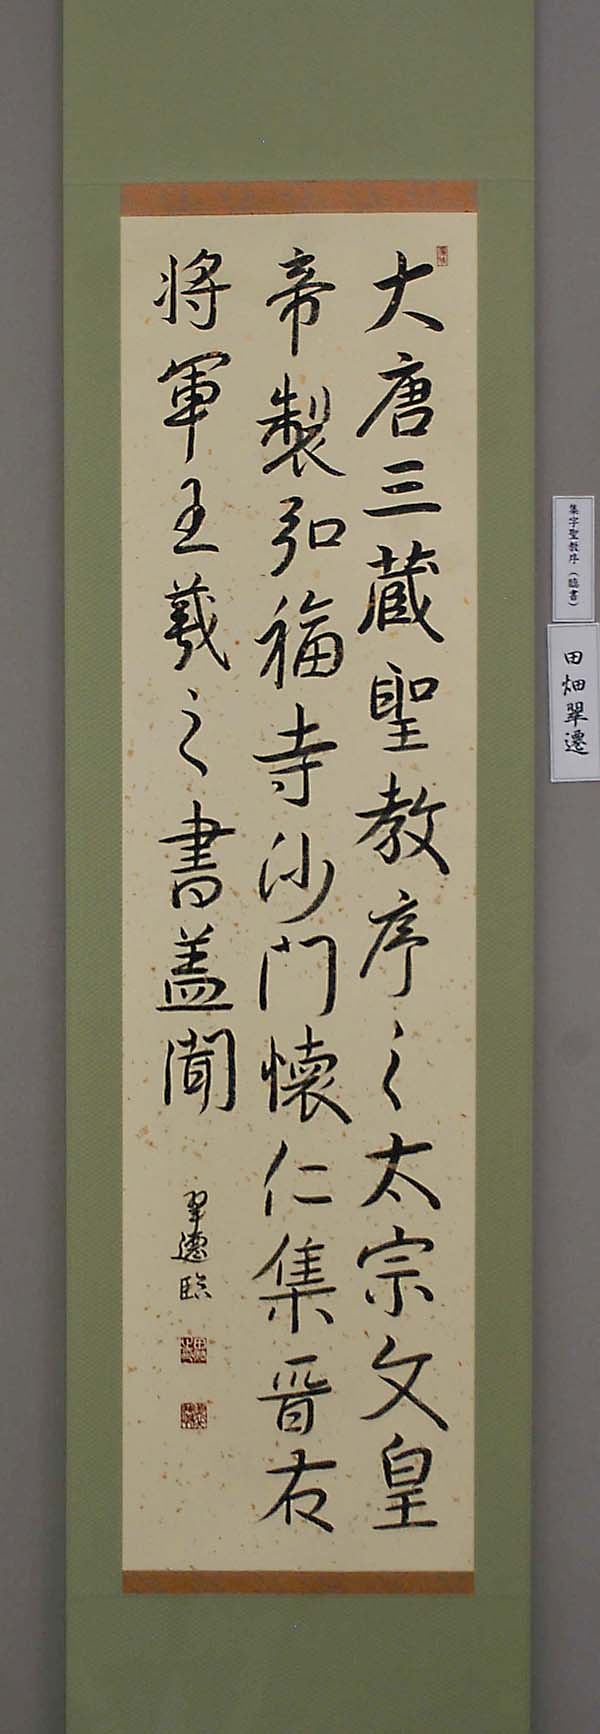 大唐三蔵聖教序之太宗文皇
帝製弘福寺沙門懐仁集晋右
将軍王羲之書盖聞
翠遷臨
集字聖教序（臨書）
田畑翠遷